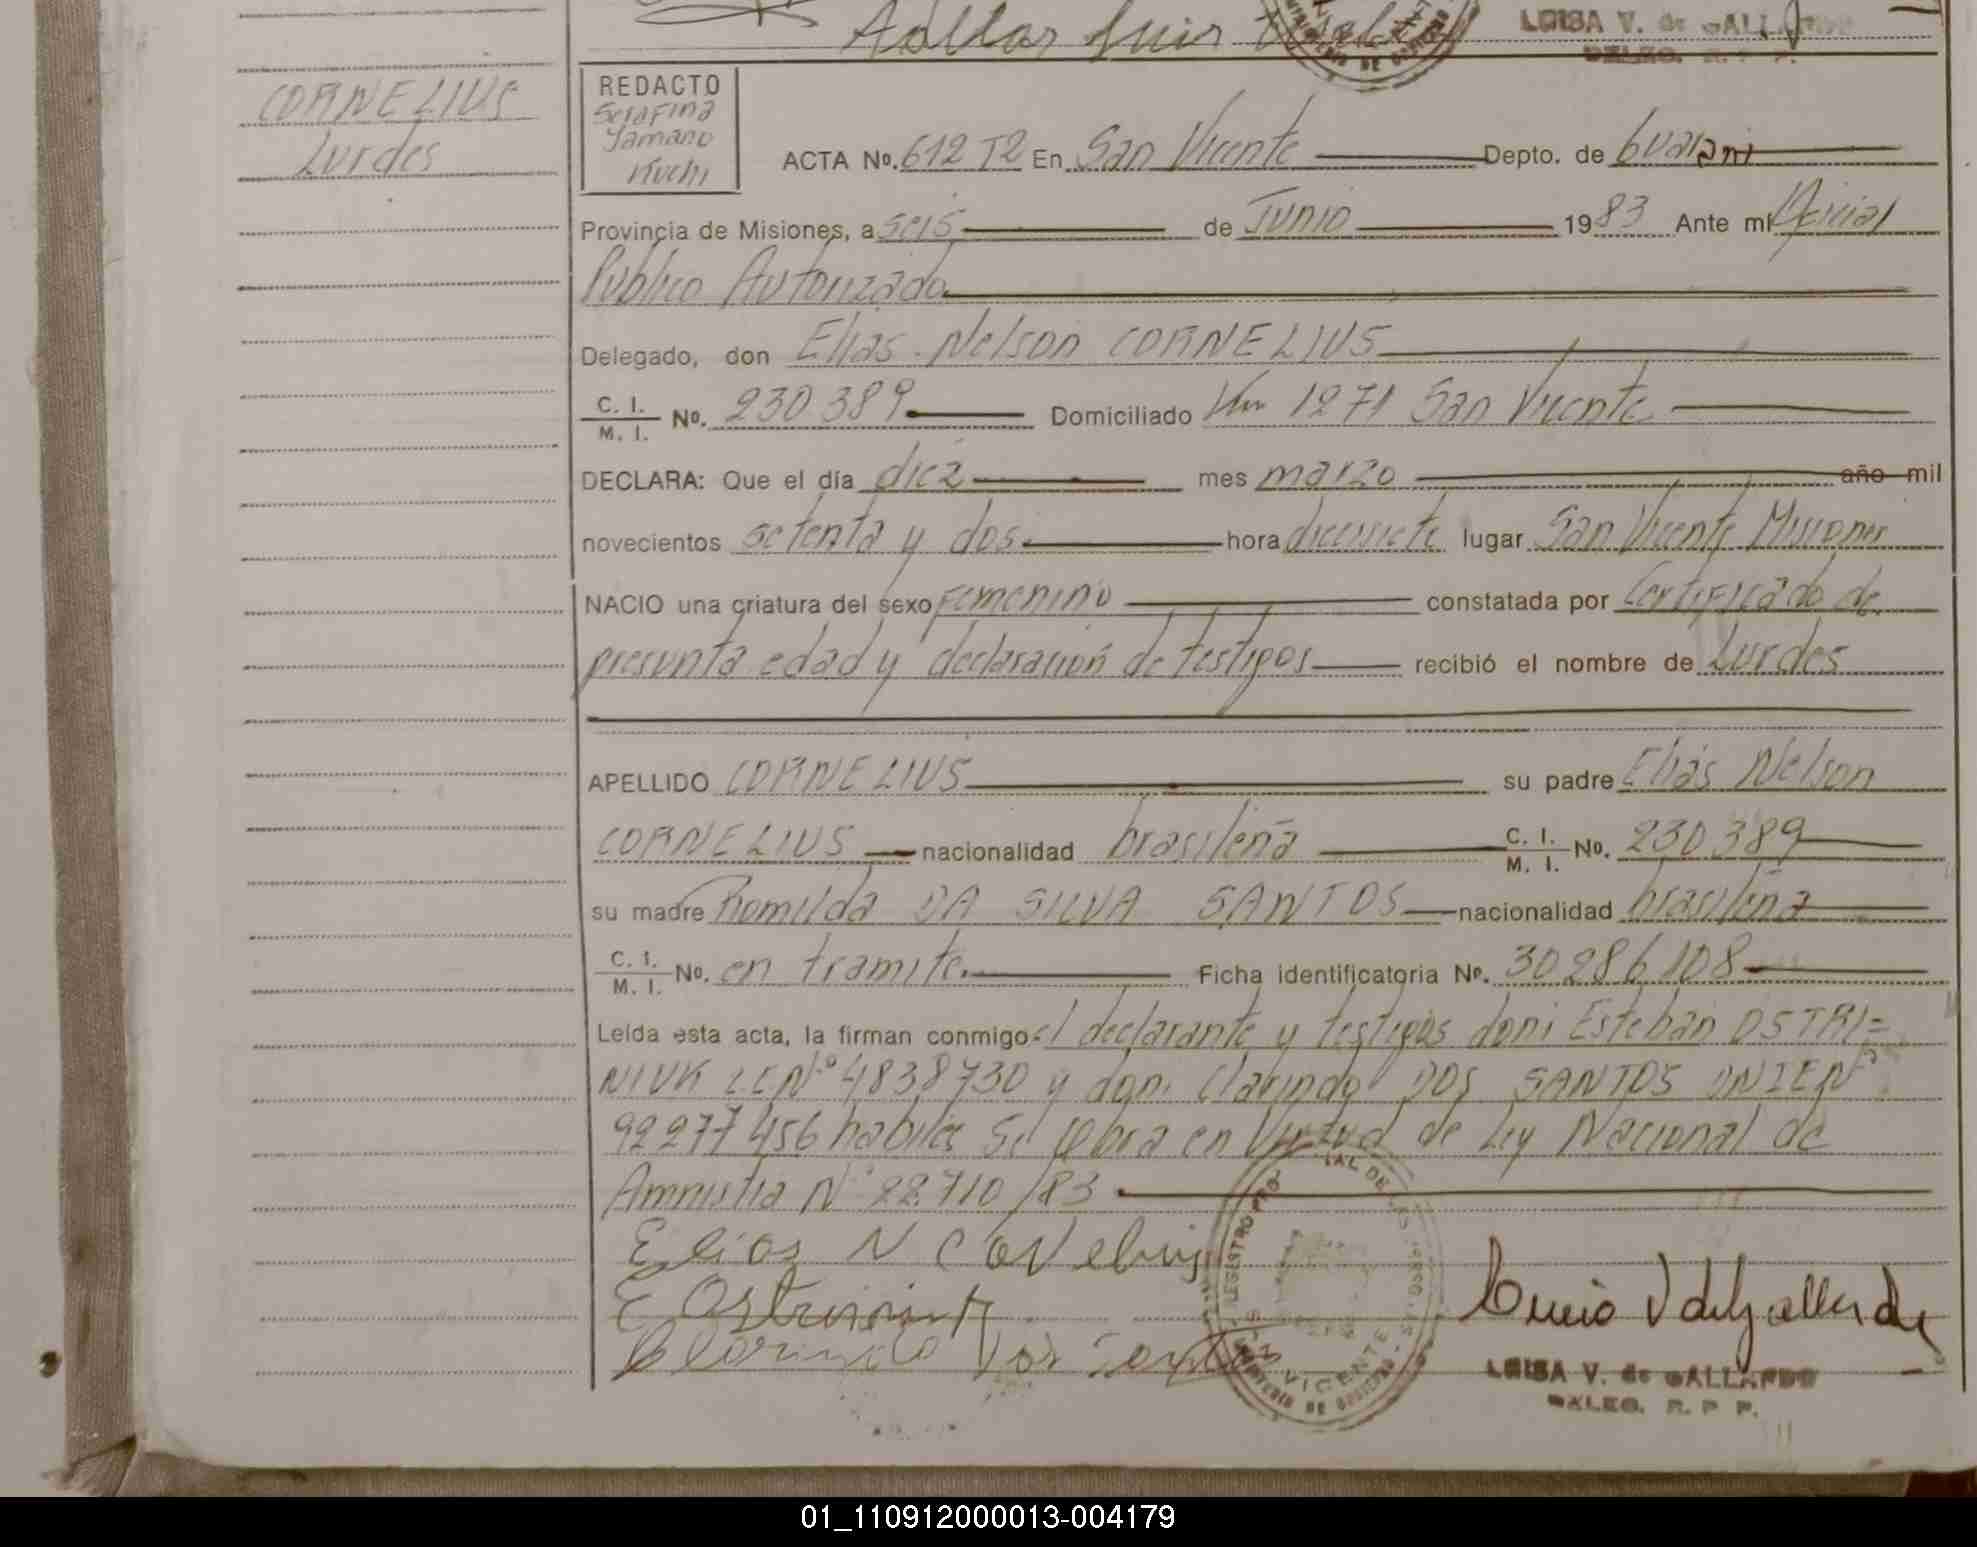 Adllar Luis
LUISA V. de GALLARDO
DELEG. R. P. P.
CORNELIUS
Lurdes
REDACTO
Serafina
Yamano
Kuchi
ACTA No. 612 T2 En San Vicente Depto. de Guarani
Provincia de Misiones, a seis de Junio 1983 Ante mí Oficial
Publico Autorizado
Delegado, don Elias Nelson CORNELIUS
C. I. / M. I. No. 230 389 Domiciliado Km 1271 San Vicente
DECLARA: Que el día diez mes marzo año mil
novecientos setenta y dos hora diecisiete lugar San Vicente Misiones
NACIO una criatura del sexo Femenino constatada por Certificado de
presunta edad y declaración de testigos recibió el nombre de Lurdes
APELLIDO CORNELIUS su padre Elias Nelson
CORNELIUS nacionalidad brasileña C. I. / M. I. No. 230 389
su madre Romilda DA SILVA SANTOS nacionalidad brasileña
C. I. / M. I. No. en tramite. Ficha identificatoria No. 30 286 108
Leída esta acta, la firman conmigo el declarante y testigos don: Esteban OSTRI=
NIUK LEN° 4838730 y don: Clarindo DOS SANTOS DNIEN°
92277456 habiles Se Obra en Virtud de Ley Nacional de
Amnistia N° 22.710/83
Elias N Cornelius
E Ostriniuk
Clarindo Dos Santos
REGISTRO
S. VICENTE
MINISTERIO DE GOBIERNO
LUISA V. de GALLARDO
DELEG. R. P. P.
01_110912000013-004179